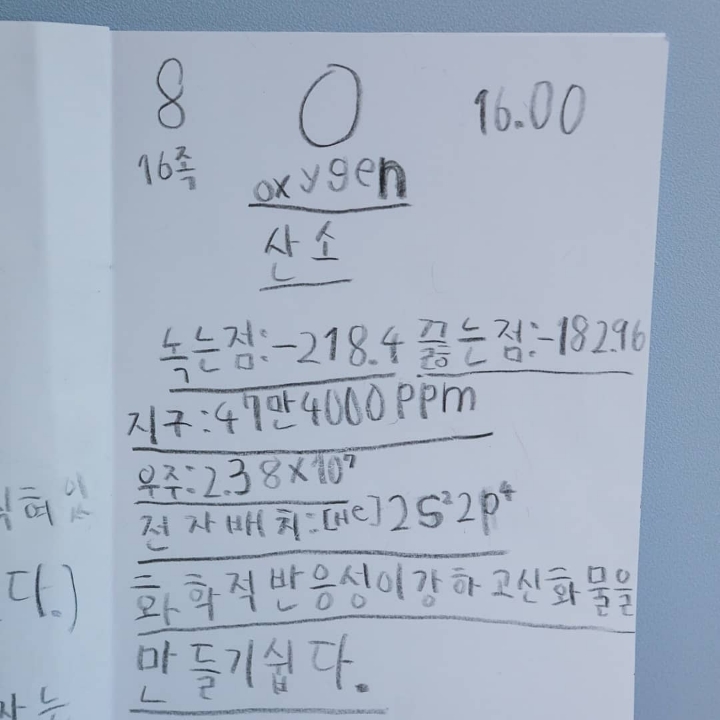 8 O 16.00
16족 oxygen
산소
녹는점:-218.4 끓는점:-182.96
지구:47만4000ppm
우주:2.38×10⁷
전자배치:[He]2s²2p⁴
화학적반응성이강하고신화물을
만들기쉽다.
다.)